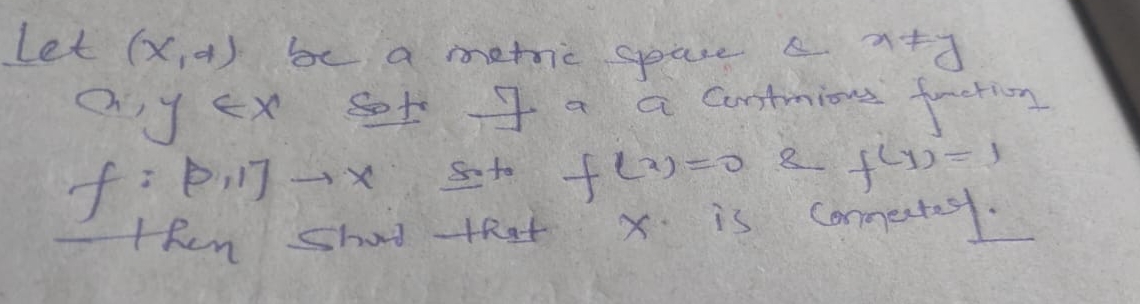 Let (X,d) be a metric space & x≠y
x,y ∈X s.t. ∃ a a Continious function
f : [0,1] → X s.t. f(x)=0 & f(y)=1
then show that X is connected.